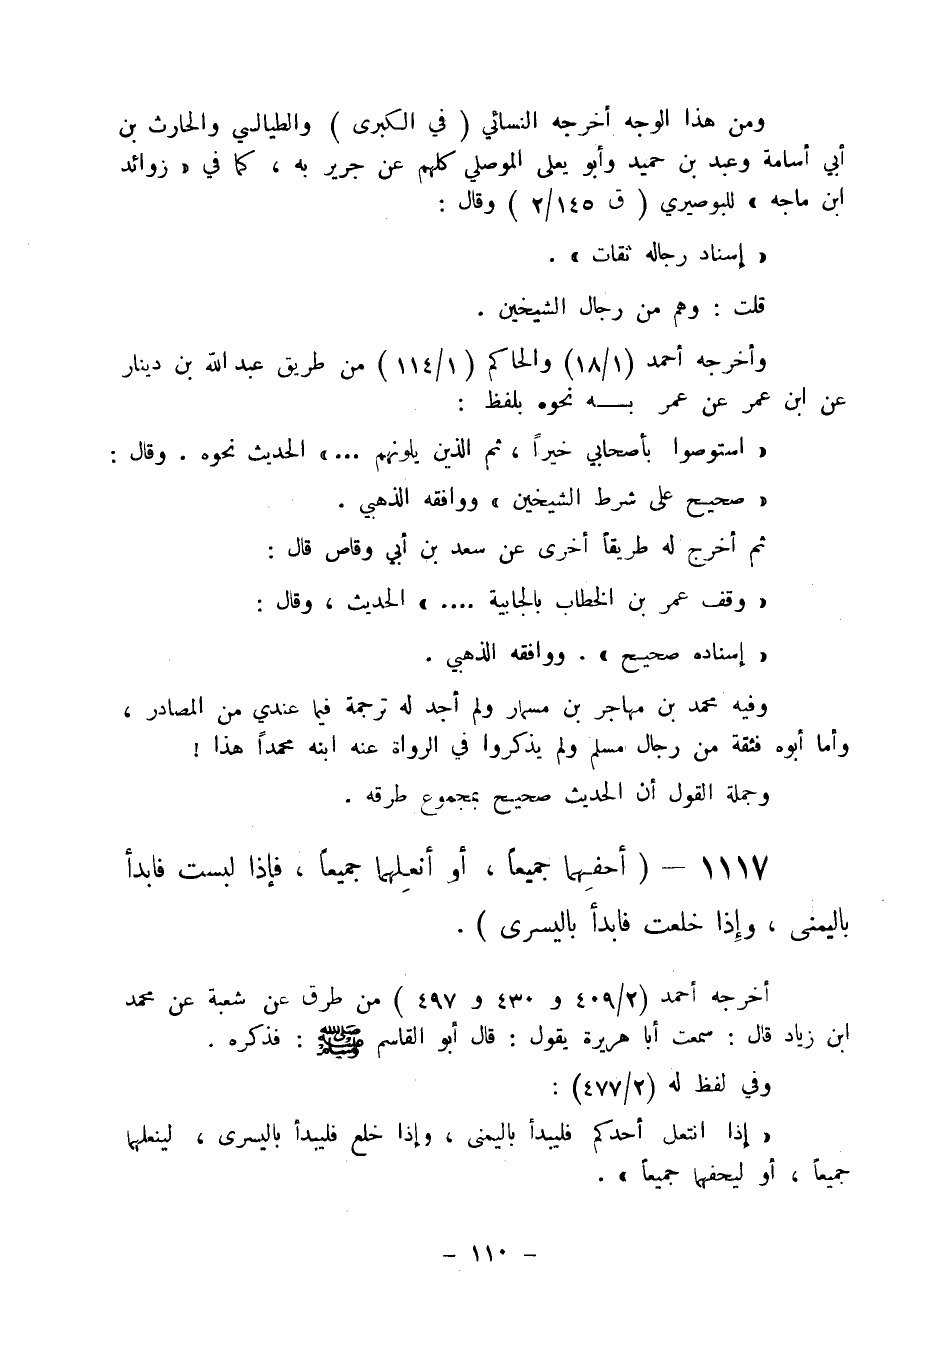 ومن هذا الوجه أخرجه النسائي ( في الكبرى ) والطيالسي والحارث بن
أبي أسامة وعبد بن حميد وأبو يعلى الموصلي كلهم عن جرير به ، كما في « زوائد
ابن ماجه » للبوصيري ( ق ٢/١٤٥ ) وقال :
« إسناد رجاله ثقات » .
قلت : وهم من رجال الشيخين .
وأخرجه أحمد (١٨/١) والحاكم (١١٤/١) من طريق عبد الله بن دينار
عن ابن عمر عن عمر بـــه نحوه بلفظ :
« استوصوا بأصحابي خيراً ، ثم الذين يلونهم ...» الحديث نحوه . وقال :
« صحيح على شرط الشيخين » ووافقه الذهبي .
ثم أخرج له طريقاً أخرى عن سعد بن أبي وقاص قال :
« وقف عمر بن الخطاب بالجابية .... » الحديث ، وقال :
« إسناده صحيح » . ووافقه الذهبي .
وفيه محمد بن مهاجر بن مسمار ولم أجد له ترجمة فيما عندي من المصادر ،
وأما أبوه فثقة من رجال مسلم ولم يذكروا في الرواة عنه ابنه محمداً هذا !
وجملة القول أن الحديث صحيح بمجموع طرقه .
١١١٧ – ( أحفِهما جميعاً ، أو أنعِلهما جميعاً ، فإذا لبست فابدأ
باليمنى ، وإذا خلعت فابدأ باليسرى ) .
أخرجه أحمد (٤٠٩/٢ و ٤٣٠ و ٤٩٧ ) من طرق عن شعبة عن محمد
ابن زياد قال : سمعت أبا هريرة يقول : قال أبو القاسم ﷺ : فذكره .
وفي لفظ له (٤٧٧/٢) :
« إذا انتعل أحدكم فليبدأ باليمنى ، وإذا خلع فليبدأ باليسرى ، لينعلهما
جميعاً ، أو ليحفهما جميعاً » .
– ١١٠ –